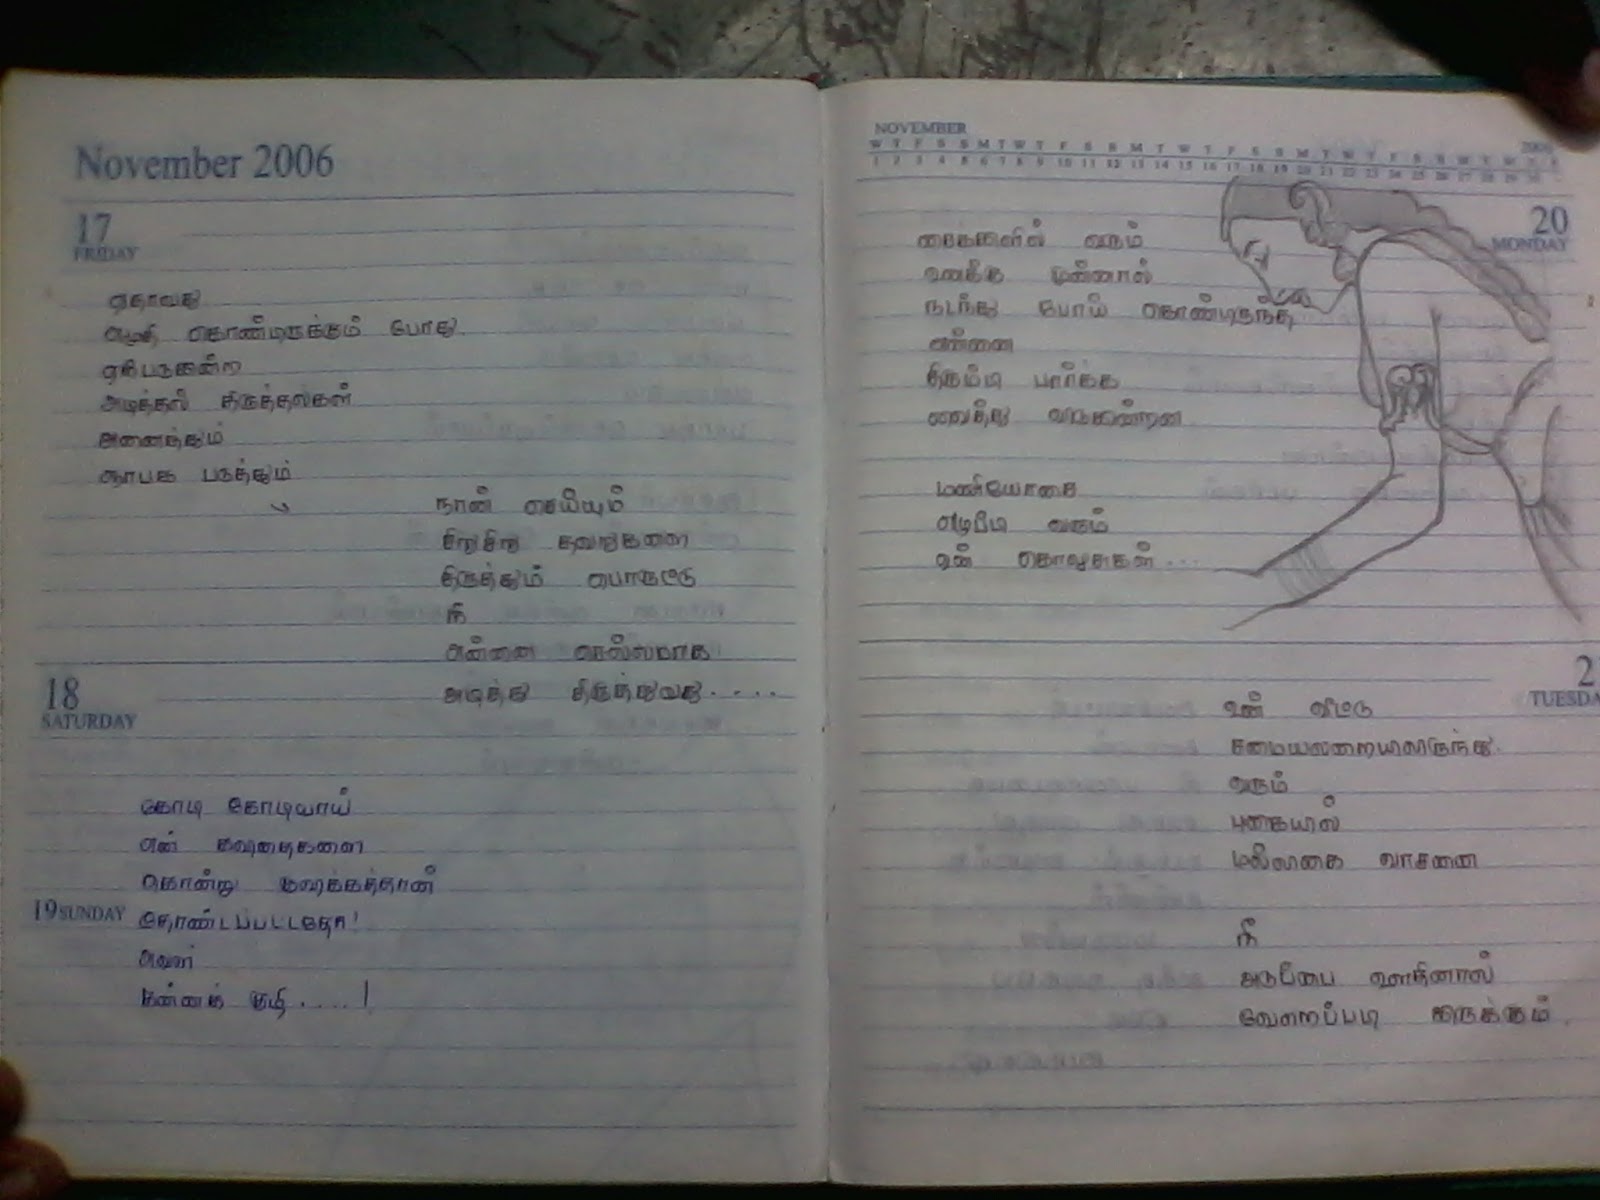 November 2006
17
FRIDAY
ஏதாவது
எழுதி கொண்டிருக்கும் போது
ஏற்படுகின்ற
அடித்தல் திருத்தல்கள்
அனைத்தும்
ஞாபக படுத்தும்
நான் செய்யும்
சிறுசிறு தவறுகளை
திருத்தும் பொருட்டு
நீ
என்னை செல்லமாக
அடித்து திருத்துவது....
18
SATURDAY
கோடி கோடியாய்
என் கவிதைகளை
கொன்று குவிக்கத்தான்
19 SUNDAY
தோண்டப்பட்டதோ!
அவள்
கன்னக் குழி....!
NOVEMBER
2006
W T F S S M T W T F S S M T W T F S S M T W T F S S M T W T
1 2 3 4 5 6 7 8 9 10 11 12 13 14 15 16 17 18 19 20 21 22 23 24 25 26 27 28 29 30
20
MONDAY
வரும்
உனக்கு முன்னால்
நடந்து போய் கொண்டிருந்த
என்னை
திரும்பி பார்க்க
வைத்து விடுகின்றன
மணியோசை
எழுப்பி வரும்
உன் கொலுசுகள்...
2
TUESDA
உன் வீட்டு
சமையலறையிலிருந்து
வரும்
புகையில்
மல்லிகை வாசனை
நீ
அடுப்பை ஊதினால்
வேறெப்படி இருக்கும்